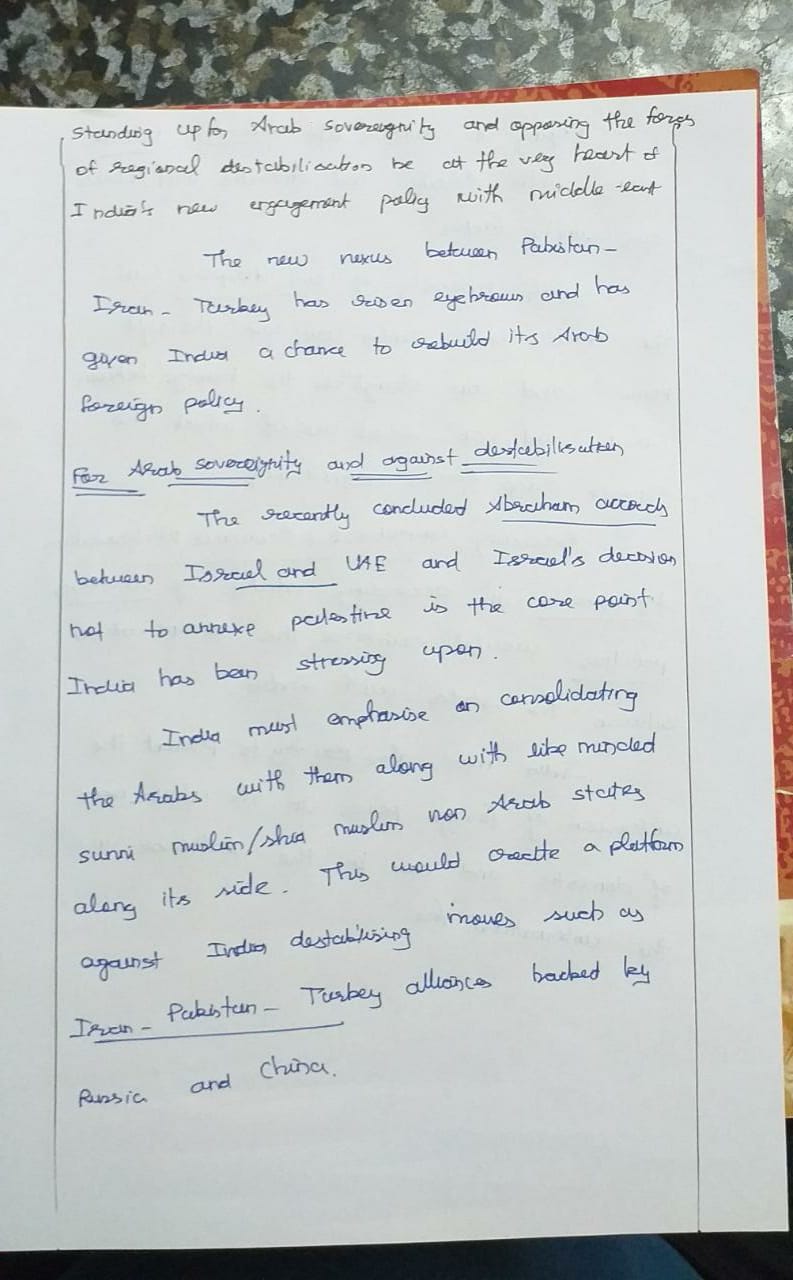 standing up for Arab sovereignity and opposing the forces
of regional destabilisation be at the very heart of
India's new engagement policy with middle-east
The new nexus between Pakistan-
Iran- Turkey has risen eyebrows and has
given India a chance to rebuild its Arab
foreign policy.
For Arab sovereignity and against destabilisation
The recently concluded Abraham accords
between Israel and UAE and Israel's decision
not to annexe palestine is the core point
India has been stressing upon.
India must emphasise on consolidating
the Arabs with them along with like minded
sunni muslim/shia muslim non Arab states
along its side. This would create a platform
against India destabilising moves such as
Iran- Pakistan- Turkey alliances backed by
Russia and China.